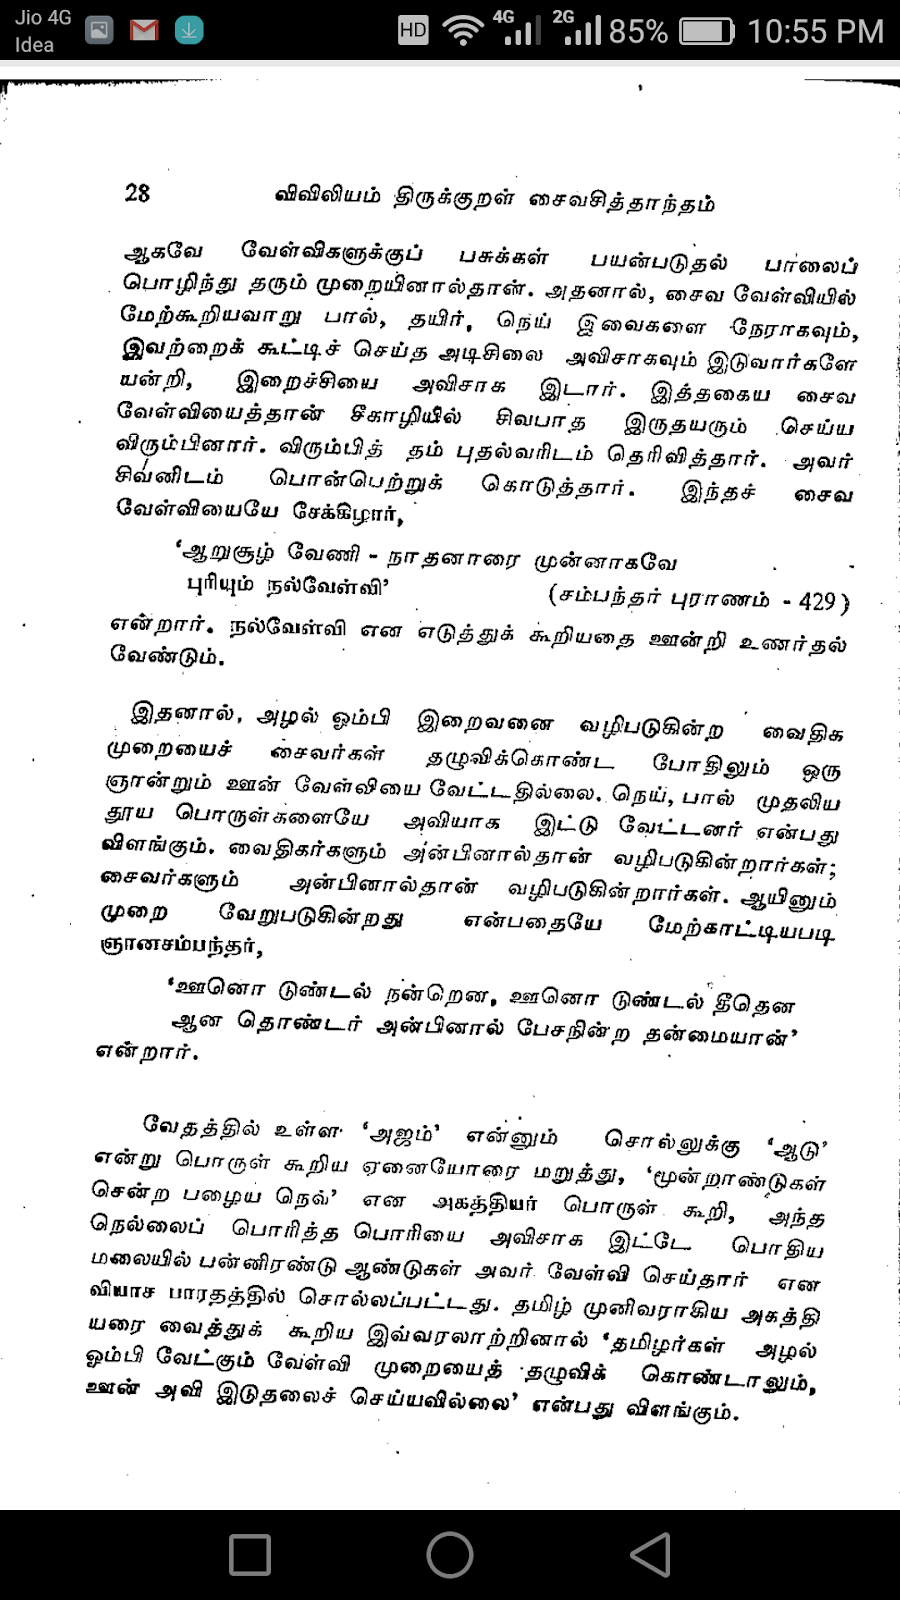 Jio 4G
Idea
HD
4G
2G
85%
10:55 PM
28
விவிலியம் திருக்குறள் சைவசித்தாந்தம்
ஆகவே வேள்விகளுக்குப் பசுக்கள் பயன்படுதல் பாலைப்
பொழிந்து தரும் முறையினால்தான். அதனால், சைவ வேள்வியில்
மேற்கூறியவாறு பால், தயிர், நெய் இவைகளை நேராகவும்,
இவற்றைக் கூட்டிச் செய்த அடிசிலை அவிசாகவும் இடுவார்களே
யன்றி, இறைச்சியை அவிசாக இடார். இத்தகைய சைவ
வேள்வியைத்தான் சீகாழியில் சிவபாத இருதயரும் செய்ய
விரும்பினார். விரும்பித் தம் புதல்வரிடம் தெரிவித்தார். அவர்
சிவனிடம் பொன்பெற்றுக் கொடுத்தார். இந்தச் சைவ
வேள்வியையே சேக்கிழார்,
‘ஆறுசூழ் வேணி - நாதனாரை முன்னாகவே
புரியும் நல்வேள்வி’ (சம்பந்தர் புராணம் - 429)
என்றார். நல்வேள்வி என எடுத்துக் கூறியதை ஊன்றி உணர்தல்
வேண்டும்.
இதனால், அழல் ஓம்பி இறைவனை வழிபடுகின்ற வைதிக
முறையைச் சைவர்கள் தழுவிக்கொண்ட போதிலும் ஒரு
ஞான்றும் ஊன் வேள்வியை வேட்டதில்லை. நெய், பால் முதலிய
தூய பொருள்களையே அவியாக இட்டு வேட்டனர் என்பது
விளங்கும். வைதிகர்களும் அன்பினால்தான் வழிபடுகின்றார்கள்;
சைவர்களும் அன்பினால்தான் வழிபடுகின்றார்கள். ஆயினும்
முறை வேறுபடுகின்றது என்பதையே மேற்காட்டியபடி
ஞானசம்பந்தர்,
‘ஊனொ டுண்டல் நன்றென, ஊனொ டுண்டல் தீதென
ஆன தொண்டர் அன்பினால் பேசநின்ற தன்மையான்’
என்றார்.
வேதத்தில் உள்ள ‘அஜம்’ என்னும் சொல்லுக்கு ‘ஆடு’
என்று பொருள் கூறிய ஏனையோரை மறுத்து, ‘மூன்றாண்டுகள்
சென்ற பழைய நெல்’ என அகத்தியர் பொருள் கூறி, அந்த
நெல்லைப் பொரித்த பொரியை அவிசாக இட்டே பொதிய
மலையில் பன்னிரண்டு ஆண்டுகள் அவர் வேள்வி செய்தார் என
வியாச பாரதத்தில் சொல்லப்பட்டது. தமிழ் முனிவராகிய அகத்தி
யரை வைத்துக் கூறிய இவ்வரலாற்றினால் ‘தமிழர்கள் அழல்
ஓம்பி வேட்கும் வேள்வி முறையைத் தழுவிக் கொண்டாலும்,
ஊன் அவி இடுதலைச் செய்யவில்லை’ என்பது விளங்கும்.